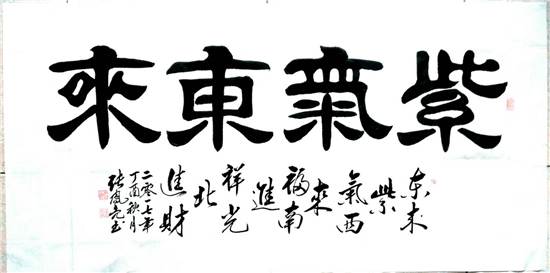 紫氣東來
东来
紫
氣西
來
福南
進
祥光
北
進財
二零一七年
丁酉秋月
张凤亮书